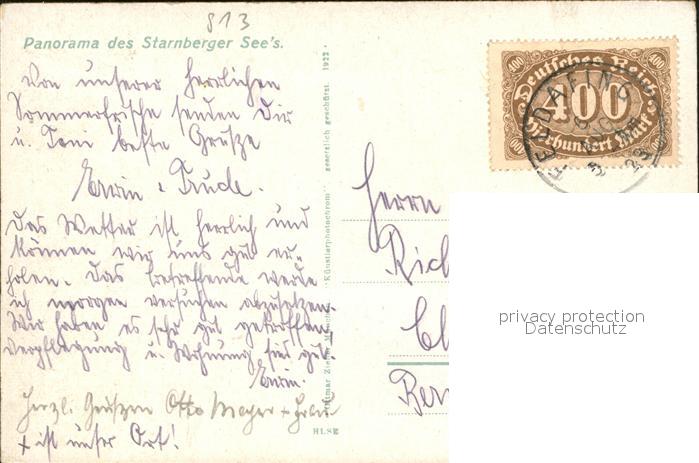 813
Panorama des Starnberger See's.
Von unserer herrlichen
Sommerfrische senden Dir
u. Toni beste Grüße
Erwin u. Trude.
Das Wetter ist herrlich und
können wir uns gut er-
holen. Das betreffende werde
ich morgen versuchen abzusetzen.
Wir haben es sehr gut getroffen
Verpflegung u. Wohnung sind gut.
Erwin.
Herzl. Grüsse Otto Meyer + Frau
x ist unser Ort!
gesetzlich geschützt 1922
"Künstlerphotochrom"
Ottmar Zieher
HLSE
Deutsches Reich
400
Vierhundert Mark
FELDAFING
23
Herrn
Rich
Ch
Ber
privacy protection
Datenschutz